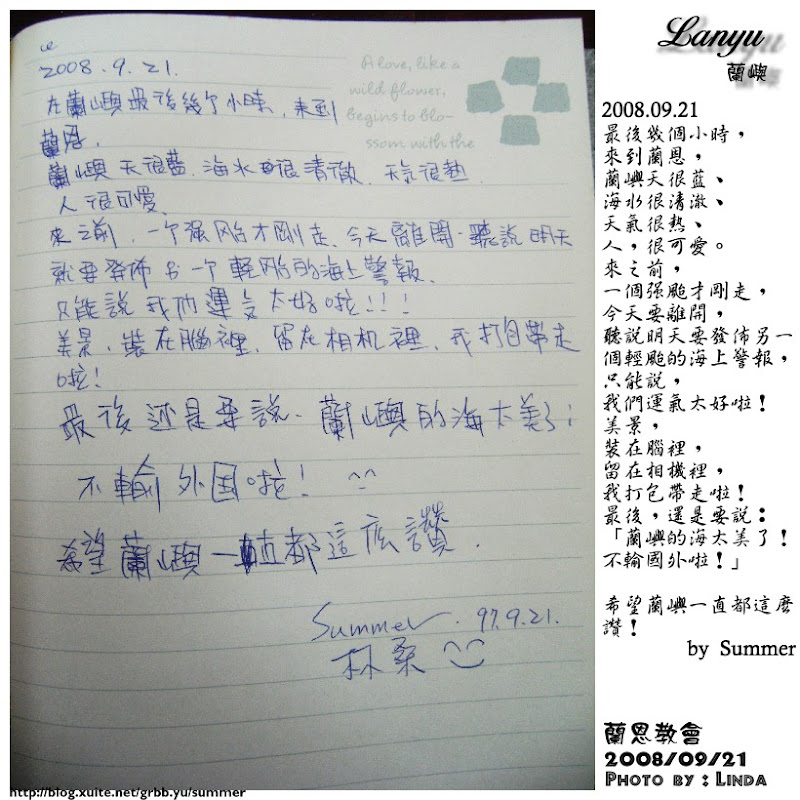 2008.9.21.
在蘭嶼最後幾个小時,來到
蘭恩,
蘭嶼天很藍、海水很清徹、天氣很熱、
人很可愛、
來之前,一个强颱才剛走、今天離開、聽說明天
就要發佈另一个輕颱的海上警報、
只能說我们運气太好啦!!!
美景、裝在腦裡、留在相机裡、我打包帶走
啦!
最後还是要說、蘭嶼的海太美了;
不輸外国啦! ^^
希望蘭嶼一直都這広讚.
Summer. 97.9.21.
林桑
A love, like a
wild flower,
Begins to blo-
ssom with the
Lanyu
蘭嶼
2008.09.21
最後幾個小時,
來到蘭恩,
蘭嶼天很藍、
海水很清澈、
天氣很熱、
人,很可愛。
來之前,
一個强颱才剛走,
今天要離開,
聽說明天要發佈另一
個輕颱的海上警報,
只能說,
我們運氣太好啦!
美景,
裝在腦裡,
留在相機裡,
我打包帶走啦!
最後,還是要說:
「蘭嶼的海太美了!
不輸國外啦!」
希望蘭嶼一直都這麼
讚!
by Summer
蘭恩教會
2008/09/21
Photo by : Linda
http://blog.xuite.net/grbb.yu/summer